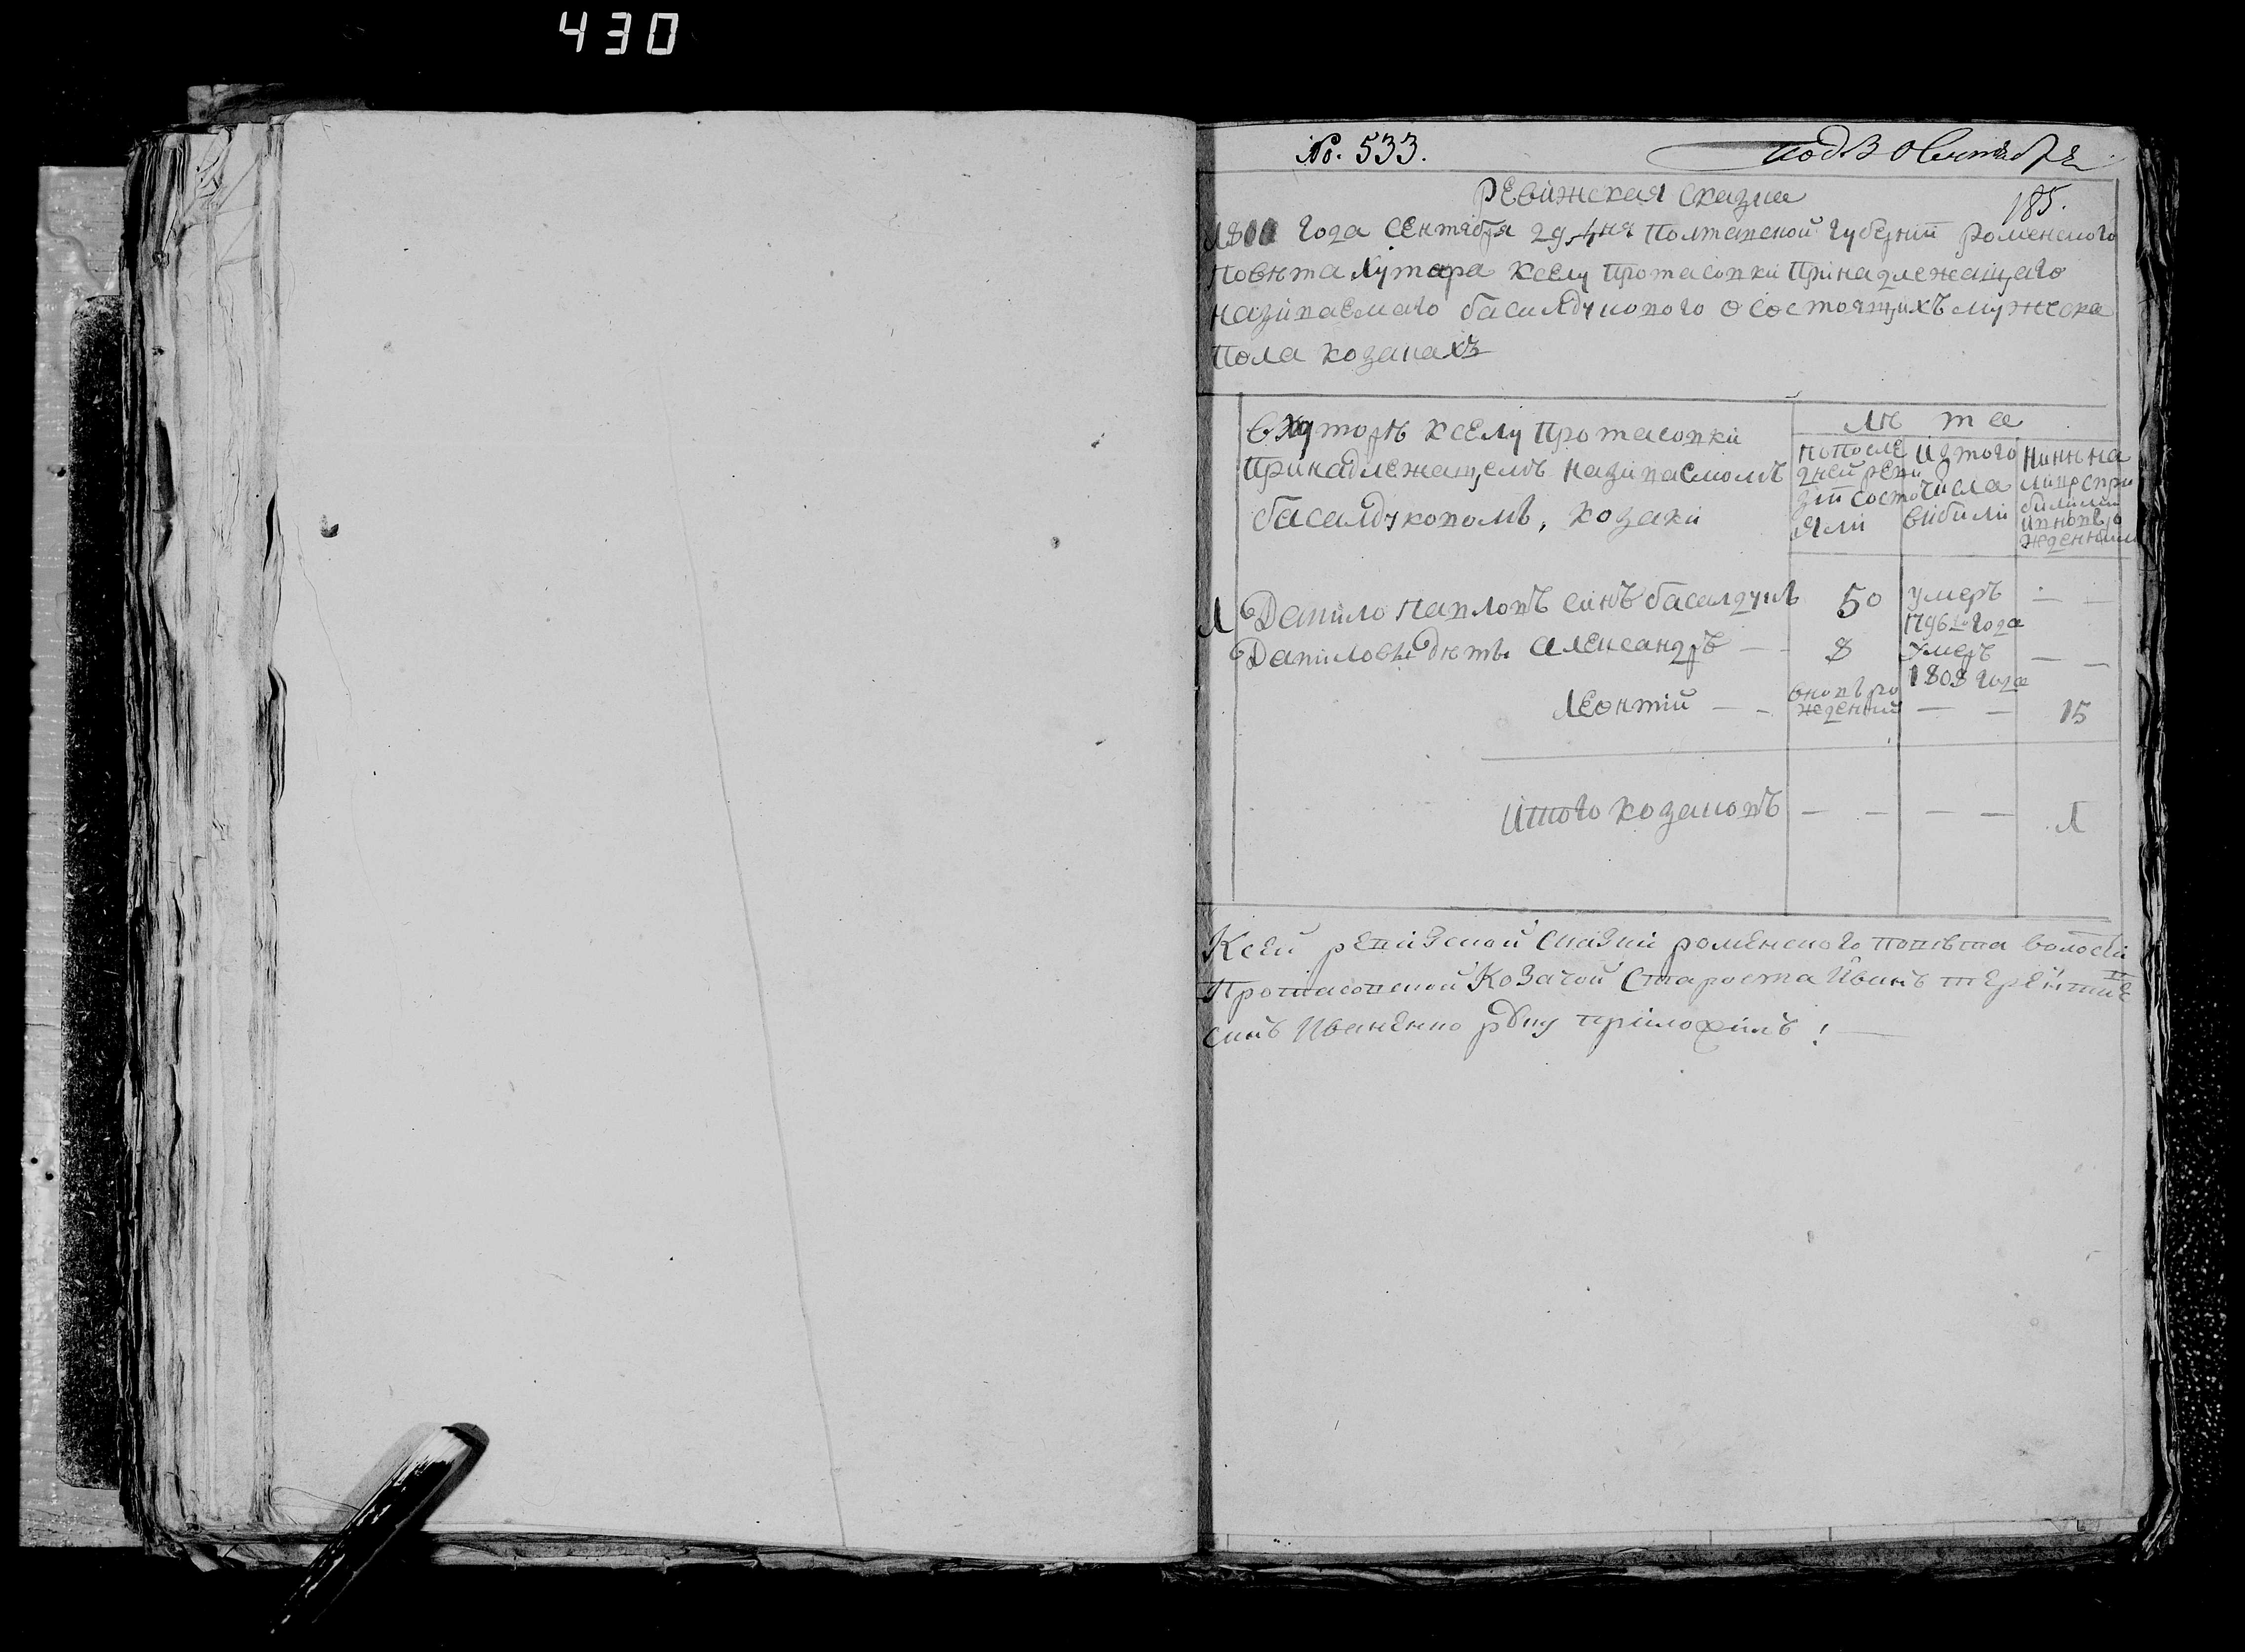 430
№. 533.
под. 30 Сентября
185.
Ревижская сказка
1811 года Сентября 29 дня Полтавской Губернии Роменского
повѣта Хутара к селу Протасовки принадлежащаго
назіваемаго басалдукового о состоящихъ мужеска
пола козаках
Лѣ та
в хуторѣ к селу Протасовки
принадлежащемъ назіваемомъ
басалдуковомъ, козаки
по после
дней реви
зіи состо
яли
Из того
числа
вибили
Нинѣ на
лицо спри
билими
и вновь ро
жденними
1 Данило Павловъ синъ басалдукъ 50 умеръ — —
1796го года
Даниловы дѣти Александръ — — 8 умеръ — —
1808 года
Леонтій — — вновь ро
жденний — — 15
Итого козаковъ — — — — 1
К сей ревизской сказки роменского повѣта волости
Протасовской Козачой Староста Иванъ терентіе
синъ Иваненко руку приложилъ!